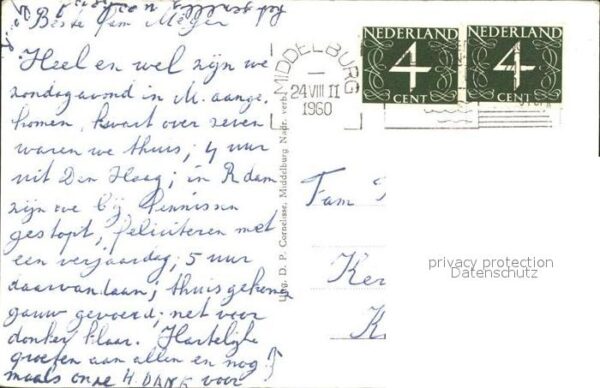 Beste Fam Meijer
Heel en wel zijn we
zondagavond in M. aange-
komen, kwart over zeven
waren we thuis; 4 uur
uit Den Haag; in R.dam
zijn we bij kennissen
gestopt, feliciteren met
een verjaardag; 5 uur
daarvandaan; thuis gekomen
gauw gevoerd; net voor
donker klaar. Hartelijke
groeten aan allen en nog
maals onze H. DANK voor
Uitg. D. P. Cornelisse, Middelburg Nadr. verb.
MIDDELBURG
24 VIII 11
1960
NEDERLAND
4
CENT
NEDERLAND
4
CENT
Fam
Ker
K
privacy protection
Datenschutz